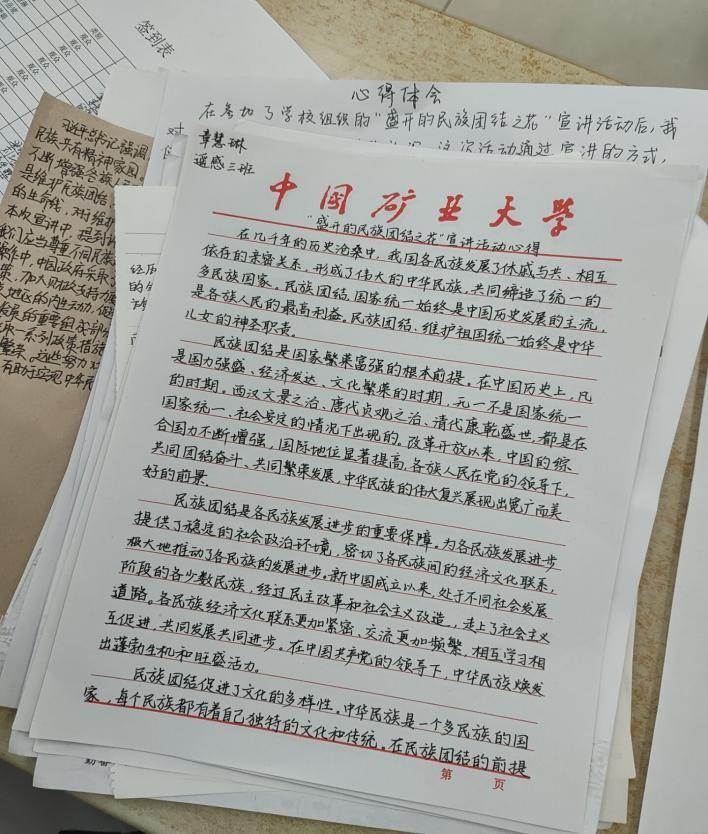 签到表
类别
观众
观众
观众
观众
观众
心得体会
在参加了学校组织的"盛开的民族团结之花"宣讲活动后,我
对
这次活动通过宣讲的方式,
章慧琳
遥感三班
中国矿业大学
"盛开的民族团结之花"宣讲活动心得
在几千年的历史沧桑中,我国各民族发展了休戚与共、相互
依存的亲密关系,形成了伟大的中华民族,共同缔造了统一的
多民族国家。民族团结、国家统一始终是中国历史发展的主流,
是各族人民的最高利益。民族团结、维护祖国统一始终是中华
儿女的神圣职责。
民族团结是国家繁荣富强的根本前提。在中国历史上,凡
是国力强盛、经济发达、文化繁荣的时期,元一不是国家统一
的时期。西汉文景之治、唐代贞观之治、清代康乾盛世,都是在
国家统一、社会安定的情况下出现的。改革开放以来,中国的综
合国力不断增强,国际地位显著提高,各族人民在党的领导下,
共同团结奋斗、共同繁荣发展,中华民族的伟大复兴展现出宽广而美
好的前景。
民族团结是各民族发展进步的重要保障。为各民族发展进步
提供了稳定的社会政治环境,密切了各民族间的经济文化联系,
极大地推动了各民族的发展进步。新中国成立以来,处于不同社会发展
阶段的各少数民族,经过民主改革和社会主义改造,走上了社会主义
道路。各民族经济文化联系更加紧密、交流更加频繁,相互学习相
互促进,共同发展共同进步。在中国共产党的领导下,中华民族焕发
出蓬勃生机和旺盛活力。
民族团结促进了文化的多样性。中华民族是一个多民族的国
家,每个民族都有着自己独特的文化和传统。在民族团结的前提
第 页
民族共有精神家园
是维护民族团结
的生命线,对维护
本次宣讲中,提到
我们应当尊重不同民族
中国政府采取
加大财政支持力度
经历
的